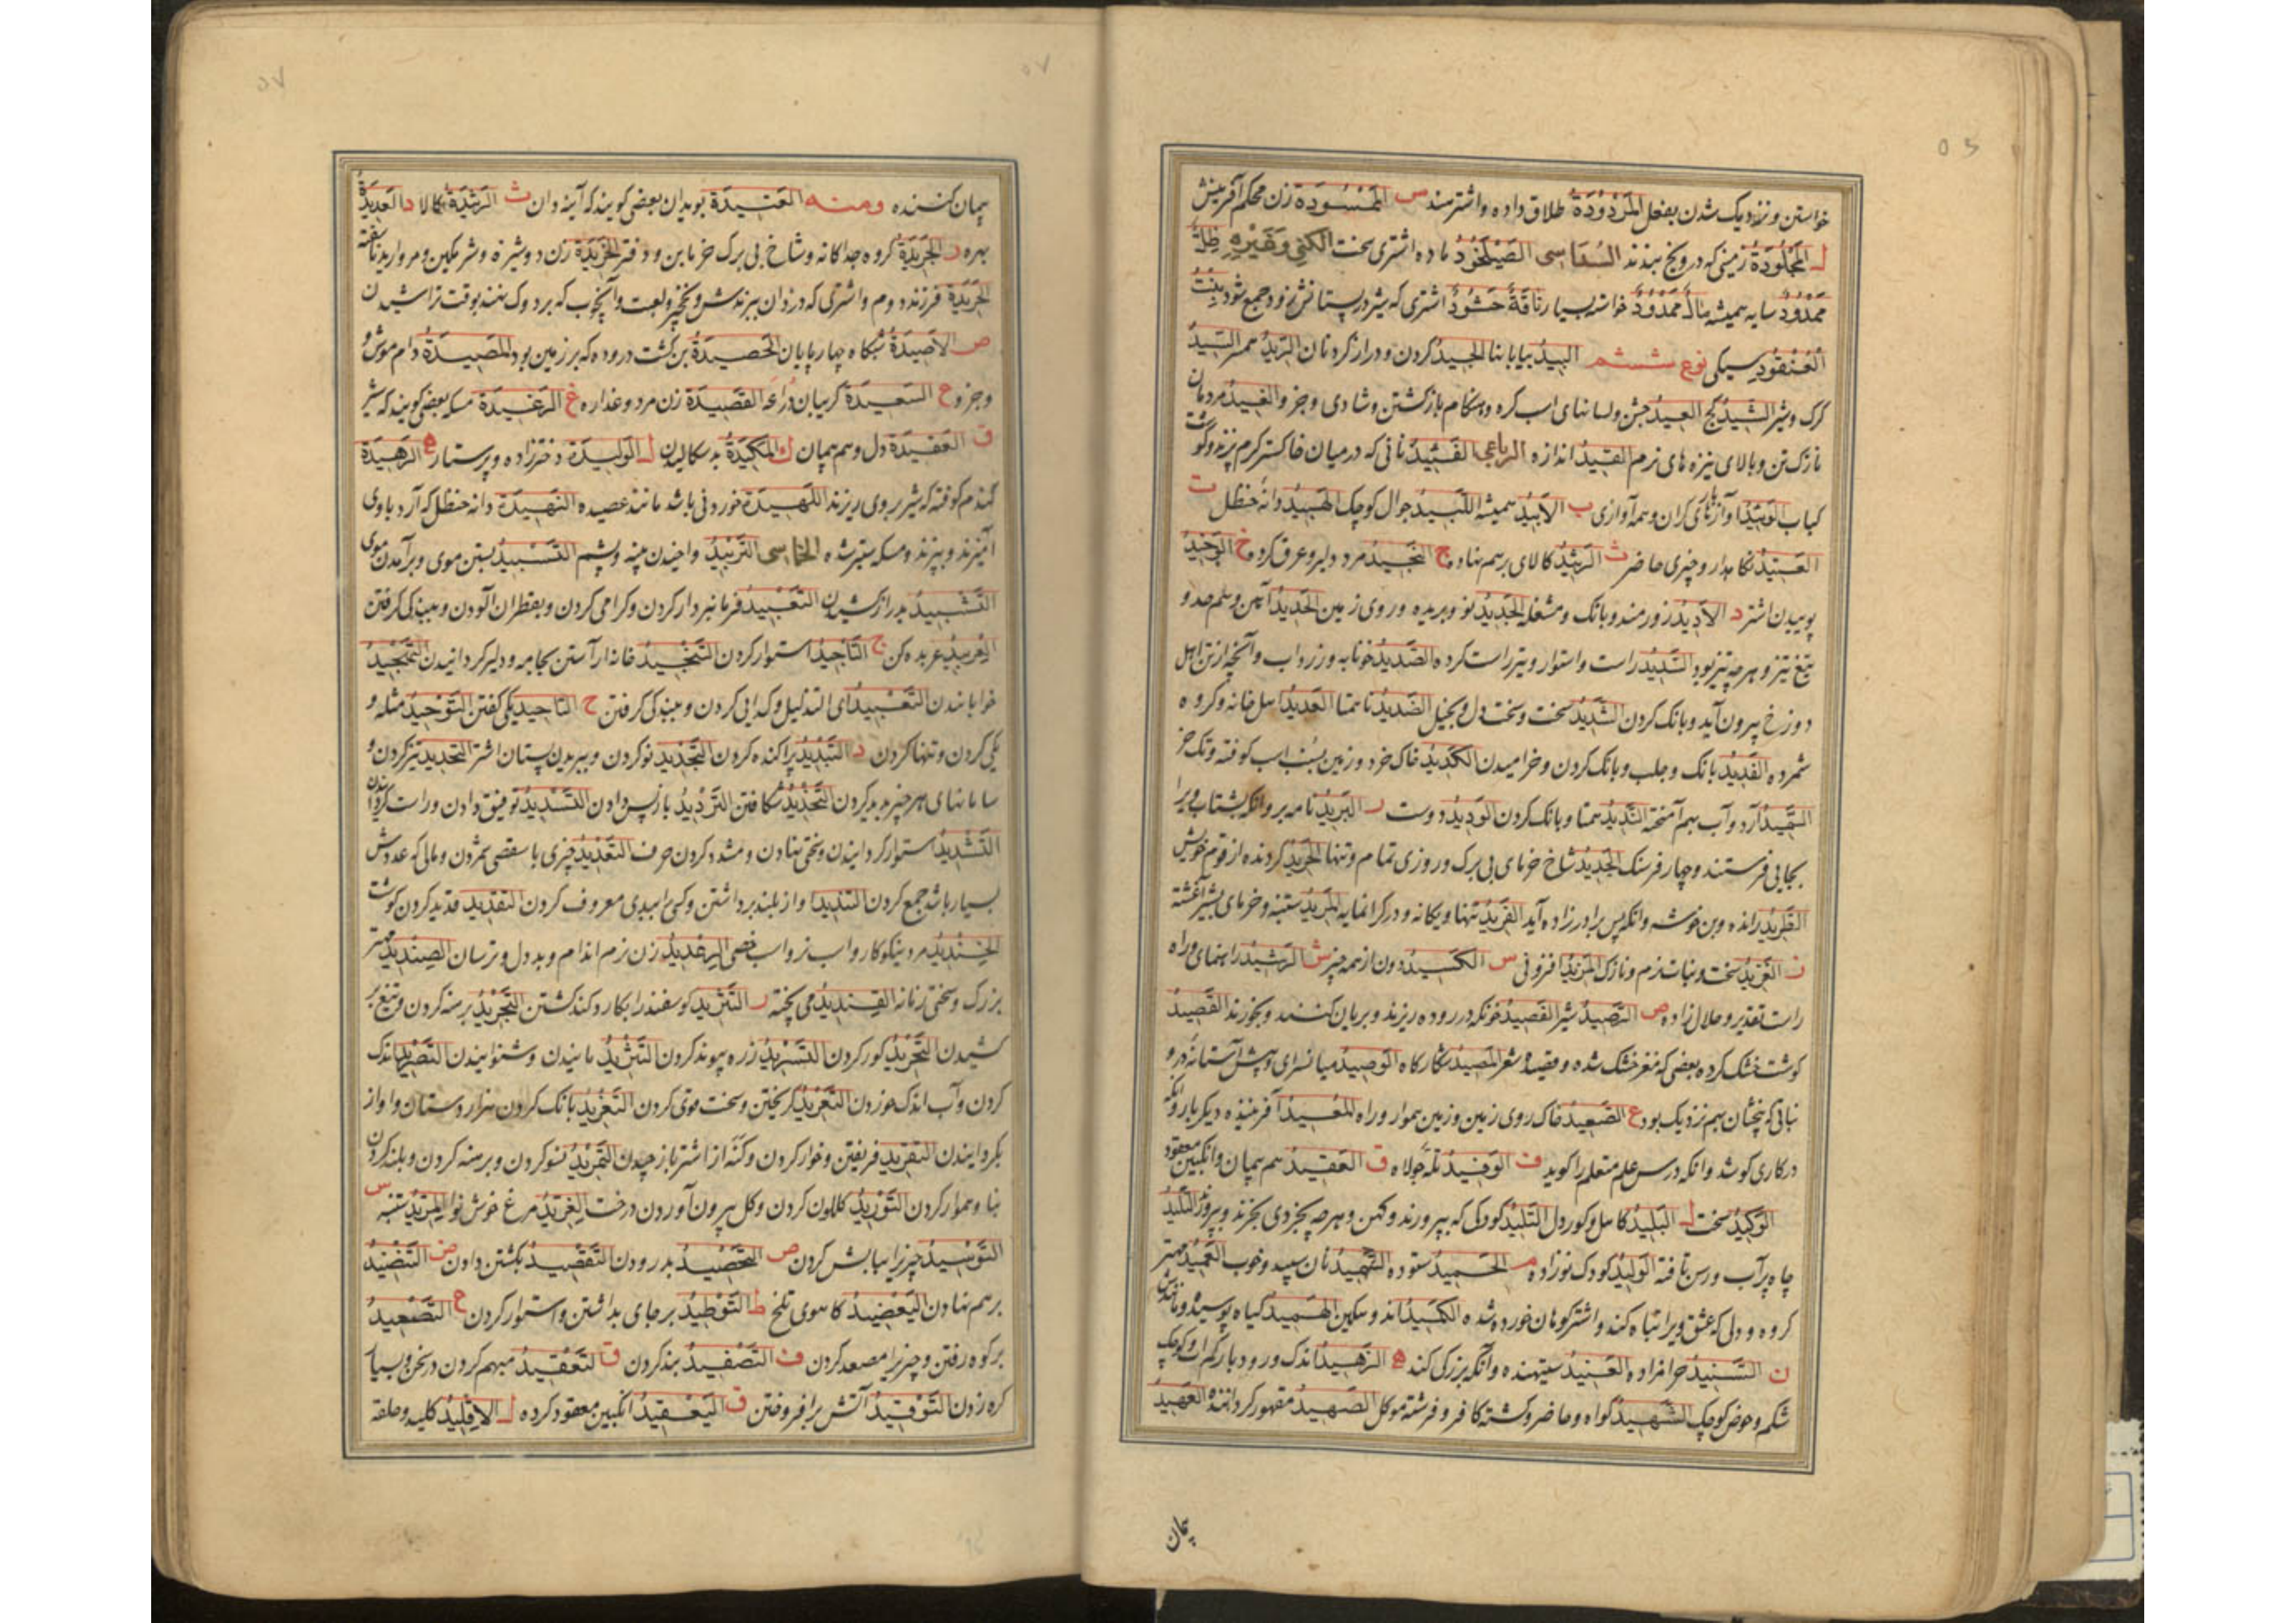 خواستن و نزدیک شدن بفعل المَرْدُودَةُ طلاق داده و اشترمند س المَمْسُودَةُ زن محکم آفرینش
ل المَجْلُودَةُ زمینی که درو یخ بندند السُدَاسی الصَّيْلَخُودُ ماده اشتری سخت الکنی وغیره ظِلٌّ
مَمْدُودٌ سایه همیشه مالٌ مَمْدُودٌ خواسته بسیار ناقَةٌ حَشُودٌ اشتری که شیر در پستانش زود جمع شود بِنْتُ
العُنْقُودِ سیکی نوع ششم البِیدُ بیابانها الجِیدُ گردن و دراز گردنان الرِّیدُ همسر السِّیدُ
گرگ و شیر الشِّیدُ گچ العِیدُ جشن و هنگام بازگشتن و شادی و جز و الغِیدُ مردمان
نازک تن و بالای نیزه های نرم القِیدُ اندازه الرباعی نانی که در میان خاکستر گرم پزند و گوشت
کباب و همه آوازی ب الأَبِیدُ همیشه اللَّبِیدُ جوال کوچک الهَبِیدُ دانه حنظل ت
العَتِیدُ نگاهدار و چیزی حاضر ث الرَّثِیدُ کالای برهم نهاده ج النَّجِیدُ مرد دلیر و عرق کرده خ الوَخِیدُ
پوییدن اشتر د الأَدِیدُ زورمند و بانگ و مشغله الجَدِیدُ نو و بریده و روی زمین الحَدِیدُ آهن و هم حد و
تیغ تیز و هر چه تیز بود السَّدِیدُ راست و استوار و تیر راست کرده الصَّدِیدُ خونابه و زرداب و آنچه از تن اهل
دوزخ بیرون آید و بانگ کردن الشَّدِیدُ سخت و سخت دل و بخیل الضَّدِیدُ ناهمتا العَدِیدُ اهل خانه و گروه
شمرده الفَدِیدُ بانگ و جلب و بانگ کردن و خرامیدن الکَدِیدُ خاک خرد و زمین بسُنب اسب کوفته و تک خر
آرد و آب بهم آمیخته النَّدِیدُ همتا و بانگ کردن الوَدِیدُ دوست ر البَرِیدُ نامه بر و آنکه بشتاب ویرا
بجایی فرستند و چهار فرسنگ الجَرِیدُ شاخ خرمای بی برگ و روزی تمام و تنها الحَرِیدُ گردنده از قوم خویش
الطَّرِیدُ رانده و بن خوشه و آنکه پس برادر زاده آید الفَرِیدُ تنها و یگانه و در گرانمایه المَرِیدُ ستنبه و خرمای بشیر آغشته
الغَرِیدُ سخت و نبات نرم و نازک المَزِیدُ افزونی س الکَسِیدُ دون از همه چیز ش الرَّشِیدُ راهنمای و راه
راست تقدیر و حلال زاده ص شیر الفَصِیدُ خونکه در روده ریزند و بریان کنند و بخورند القَصِیدُ
گوشت خشک کرده بعضی که مغز خشک شده و قصیده شعر المَصِیدُ شکارگاه الوَصِیدُ میانسرای و پیش آستانه در و
نباتی که بیخشان بهم نزدیک بود ع الصَّعِیدُ خاک روی زمین و زمین هموار و راه المُعِیدُ آفریننده دیگر بار و آنکه
در کاری کوشد و آنکه درس علم متعلم را گوید ف الوَفِیدُ تله جولاه ق العَقِیدُ هم پیمان و انگبین معقود
الوَکِیدُ سخت ل البَلِیدُ کاهل و کوردل التَّلِیدُ کودکی که بپرورند و کهن و هر چه بخردی بخرند و بپروزند
چاه پر آب و رسن تافته الوَلِیدُ کودک نوزاده م الحَمِیدُ ستوده نان سپید و خوب العَمِیدُ مهتر
گروه و دلی که عشق ویرا تباه کند و اشتر کوهان خورده شده الکَمِیدُ اندوهگین الهَمِیدُ گیاه پوسیده
ن السَّنِیدُ حرامزاده العَنِیدُ ستیهنده و آنکه بزرگی کند ه الزَّهِیدُ اندک و رود بار کم آب و کوچک
شکم و حوض کوچک الشَّهِیدُ گواه و حاضر و کشته کافر و فرشته موکل الصَّهِیدُ مقهور گرداننده العَهِیدُ
پیمان
پیمان کننده ومنه العَتِیدَةُ بویدان بعضی گویند که آینه دان ث الرَّثِیدَةُ کالا د العَدِیدَةُ
بهره ر الجَرِیدَةُ گروه جداگانه و شاخ بی برگ خرما بن و دفتر الخَرِیدَةُ زن دوشیزه و شرمگین و مروارید ناسفته
فرزند دوم و اشتری که دزدان ببرندش و نخچیر و لعبت و آنچوب که بر دوک نهند بوقت تراشیدن
ص الأَصِیدَةُ شبگاه چارپایان الحَصِیدَةُ بن کشت دروده که بر زمین بود المَصِیدَةُ دام موش و
و جز و ع السَّعِیدَةُ گریبان دُرّاعه القَصِیدَةُ زن مرد و غداره غ الرَّغِیدَةُ مسکه بعضی گویند که شیر
ق العَقِیدَةُ دل و هم پیمان ک المَکِیدَةُ بد سگالیدن ل الوَلِیدَةُ دختر زاده و پرستار ه الرَّهِیدَةُ
گندم کوفته که شیر بر وی ریزند اللَّهِیدَةُ خوردنی باشد مانند عصیده النَّهِیدَةُ دانه حنظل که آرد با وی
آمیزند و بپزند و مسکه ستبر شده الخماسی التَّرْبِیدُ واخیدن پنبه و پشم التَّسْبِیدُ بستن موی و برآمدن موی
بدراز کشیدن التَّعْبِیدُ فرمانبردار کردن و گرامی کردن و بقطران آلودن و ببندگی گرفتن
العِرْبِیدُ عربده کن ج التَّأْجِیدُ استوار کردن التَّنْجِیدُ خانه را آراستن بجامه و دلیر گردانیدن التَّهْجِیدُ
خوابانیدن التَّعْبِیدُ ای التذلیل و گدایی کردن و ببندگی گرفتن ح التَّأْحِیدُ یکی گفتن التَّوْحِیدُ مثله و
یکی کردن و تنها کردن د التَّبْدِیدُ پراکنده کردن التَّجْدِیدُ نو کردن و ببریدن پستان اشتر التَّحْدِیدُ تیز کردن و
سامانهای هر چیز پدید کردن التَّخْدِیدُ شکافتن التَّرْدِیدُ باز پس دادن التَّسْدِیدُ توفیق دادن و راست گردانیدن
التَّشْدِیدُ استوار گردانیدن و سختی نهادن و مشدد کردن حرف التَّعْدِیدُ چیزی باستقصی شمردن و مالی که عددش
بسیار باشد جمع کردن التَّنْدِیدُ آواز بلند برداشتن و کسی را ببدی معروف کردن التَّقْدِیدُ قدید کردن گوشت
الخِنْدِیدُ مرد نیکوکار و اسب نر و اسب خصی الرِّعْدِیدُ زن نرم اندام و بد دل و ترسان الصِّنْدِیدُ مهتر
بزرگ و سختی زمانه القِنْدِیدُ می پخته ر گوسفند را بکارد کند کشتن التَّجْرِیدُ برهنه کردن و تیغ بر
کشیدن التَّحْرِیدُ کور کردن التَّسْرِیدُ زره پیوند کردن مانیدن و شنوانیدن التَّصْرِیدُ اندک
کردن و آب اندک خوردن التَّعْرِیدُ گریختن و سخت قوی کردن التَّغْرِیدُ بانگ کردن هزار دستان و آواز
بگردانیدن التَّقْرِیدُ فریفتن و خوار کردن و کنه از اشتر باز چیدن التَّمْرِیدُ نسو کردن و برهنه کردن و بلند کردن
بنا و هموار کردن التَّوْرِیدُ گلگون کردن و گل بیرون آوردن درخت الغِرِّیدُ مرغ خوش نوا المِرِّیدُ ستنبه س
التَّوْسِیدُ چیزی را بالش کردن ص التَّحْصِیدُ بدرودن التَّقْصِیدُ بکشتن دادن ض التَّنْضِیدُ
برهم نهادن الیَعْضِیدُ کاهوی تلخ ط التَّوْطِیدُ بر جای بداشتن و استوار کردن ع التَّصْعِیدُ
بر کوه رفتن و چیزی را مصعد کردن ف التَّصْفِیدُ بند کردن ق التَّعْقِیدُ مبهم کردن در سخن و بسیار
گره زدن التَّوْقِیدُ آتش برافروختن ق الیَعْقِیدُ انگبین معقود کرده ل الإِقْلِیدُ کلید و حلقه